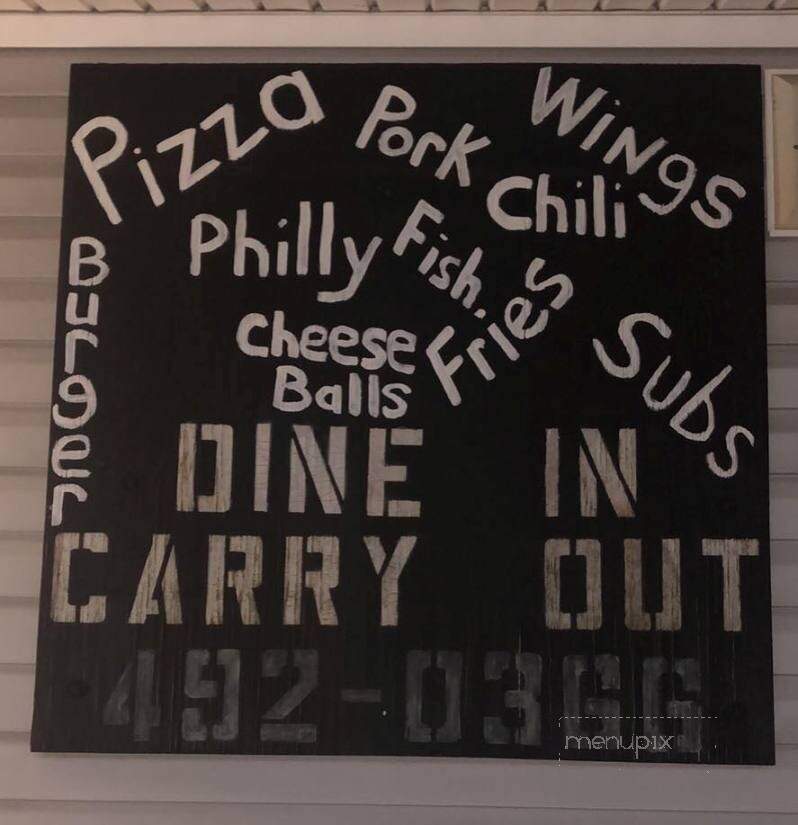 Pizza
Pork
Wings
Chili
Philly
Fish.
Fries
Cheese
Balls
Subs
Burger
DINE IN
CARRY OUT
492-0366
menupix